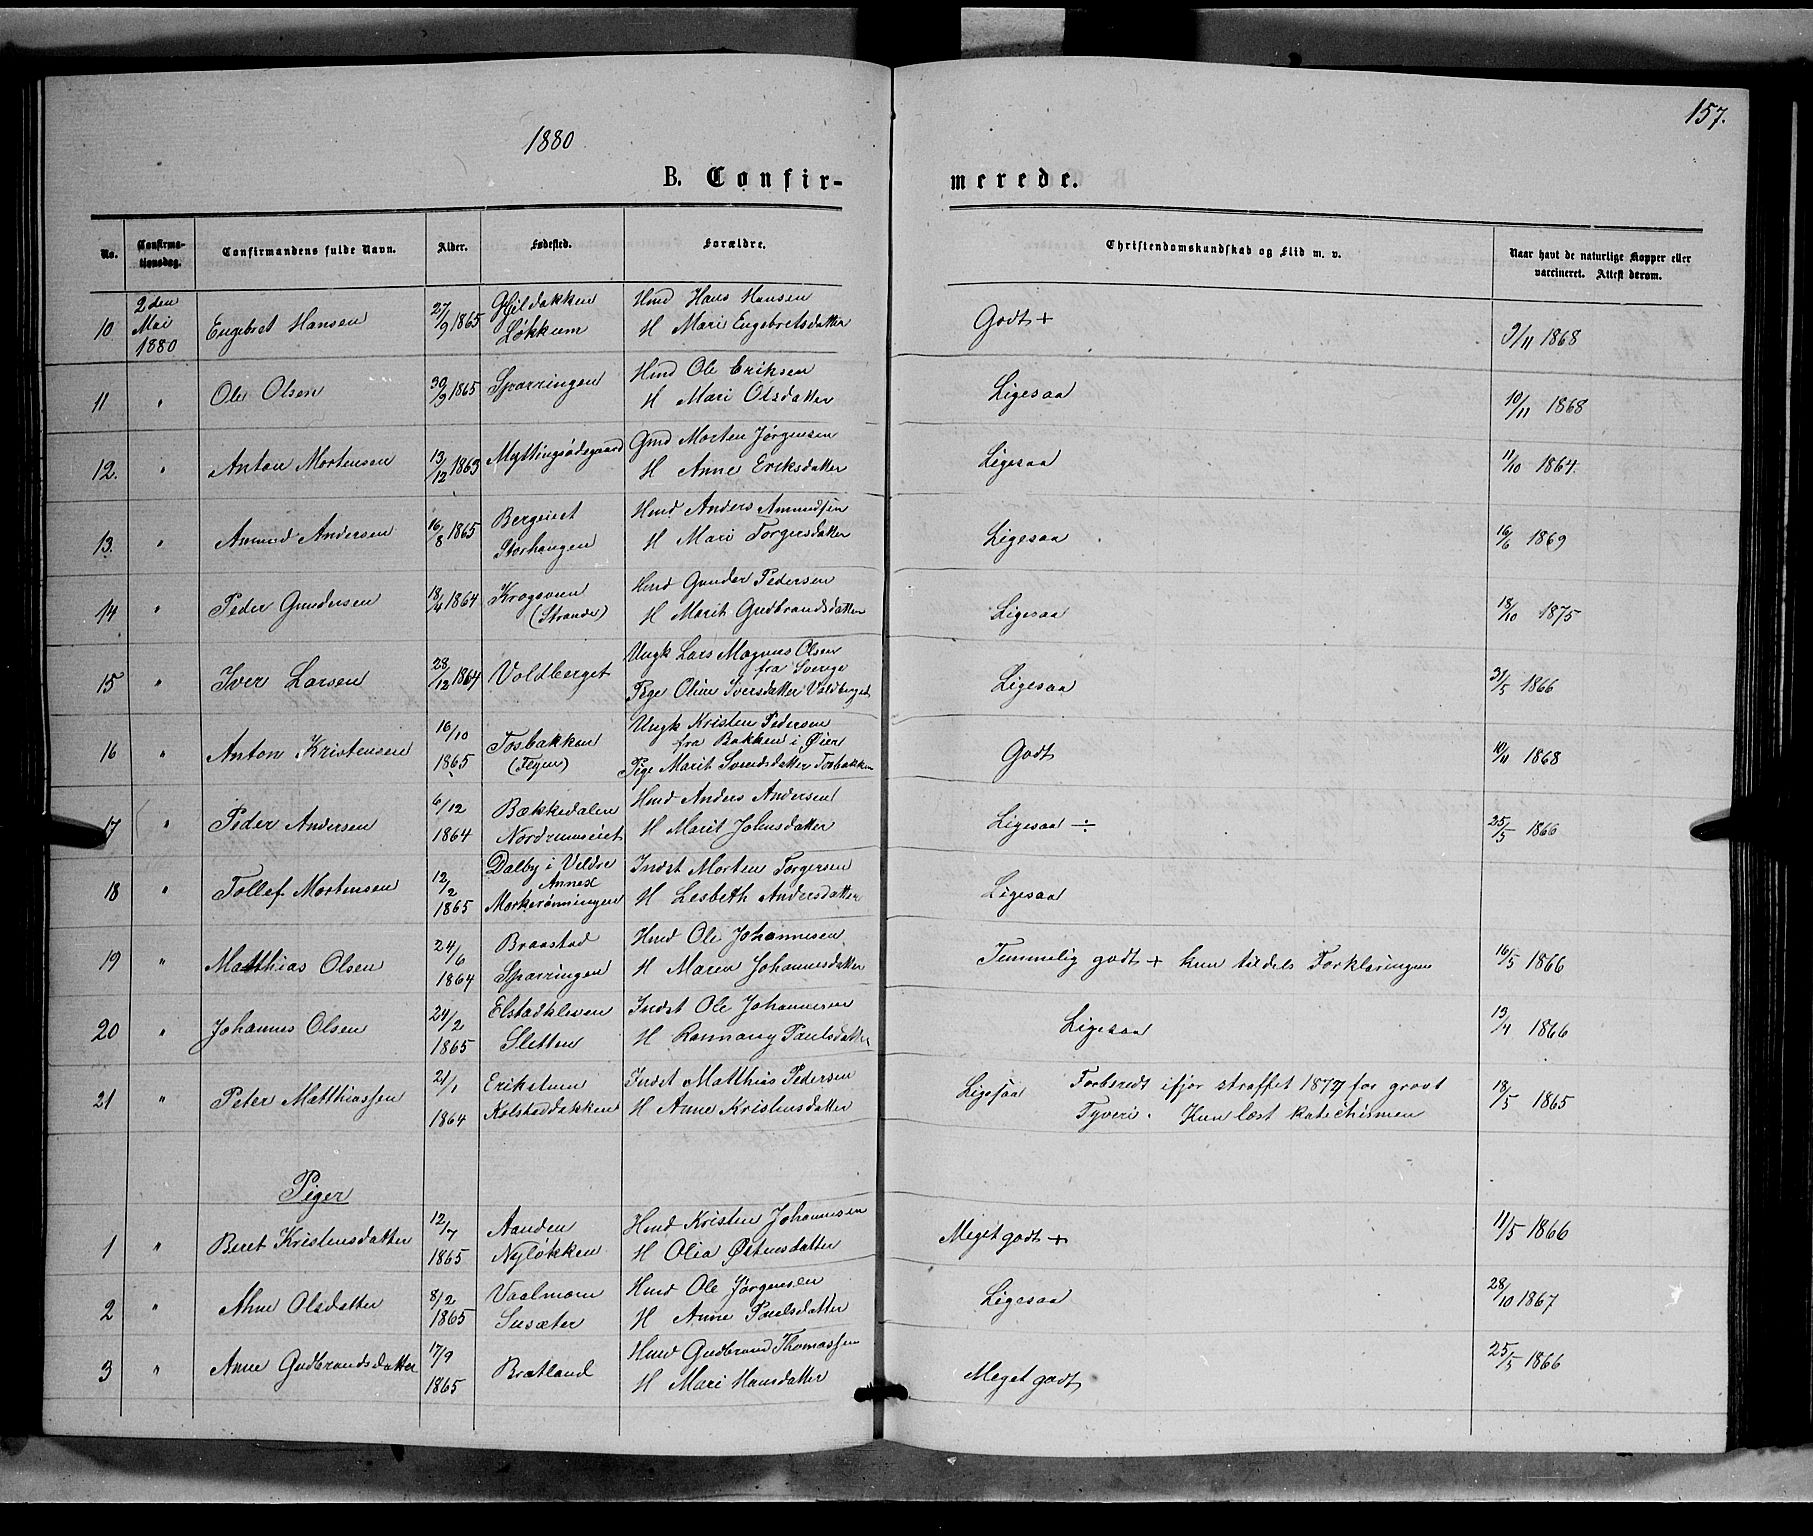 157.
1880
B. Confirmerede.
No. Confirmationsdag. Confirmandens fulde Navn. Alder. Fødested. Forældre. Christendomskundskab og Flid m. v. Naar havt de naturlige Kopper eller vaccineret. Attest derom.
10. 2den Mai 1880 Engebret Hansen 27/9 1865 Løkkum Hmd Hans Hansen H Mari Engebretsdatter Godt + 9/11 1868
11 " Ole Olsen 30/9 1865 Sparringen Hmd Ole Eriksen H Mari Olsdatter Ligesaa 10/11 1868
12. " Anton Mortensen 13/12 1863 Myttingsødegaard Gmd Morten Jørgensen H Anne Eriksdatter Ligesaa 11/10 1864.
13. " Amund Andersen 16/8 1865 Bergeiet Storhaugen Hmd Anders Amundsen H Mari Torgersdatter Ligesaa 16/6 1869
14 " Peder Gundersen 18/4 1864 Krogsveen (Strande) Hmd Gunder Pedersen H Marit Gudbrandsdatter Ligesaa 18/10 1875
15 " Iver Larsen 28/12 1864 Voldberget Ungk Lars Magnus Olsen fra Sverige Pige Oline Iversdatter Voldberget Ligesaa 31/5 1866
16 " Anton Kristensen 16/10 1865 Tosbakken Ungk Kristen Pedersen fra Bakken i Øier Pige Marit Svendsdatter Tosbakken Godt 10/11 1868
17 " Peder Andersen 6/12 1864 Bækkedalen Nordrumseiet Hmd Anders Andersen H Marit Johnsdatter Ligesaa ÷ 25/5 1866
18 " Tollef Mortensen 12/2 1865 Dalby i Veldre Annex Morkerønningen Indst Morten Torgersen H Lesbeth Andersdatter Ligesaa
19 " Matthias Olsen 24/6 1864 Braastad Sparringen Hmd Ole Johannesen H Maren Johannesdatter Temmelig godt + kun tildels Forklaringen 16/5 1866
20 " Johannes Olsen 24/2 1865 Elstadkleven Sletten Indst Ole Johannesen H Ronnaug Paulsdatter Ligesaa 13/4 1866
21 " Peter Matthiassen 21/1 1864 Erikstuen Kolstadbakken Indst Matthias Pedersen H Anne Kristensdatter Ligesaa Forberedt ifjor straffet 1877 for grovt Tyveri. Kun læst katechismen 18/5 1865
Piger
1 " Beret Kristensdatter 12/7 1865 Aanden Nyløkken Hmd Kristen Johannesen H Olia Østensdatter Meget godt + 11/5 1866
2 " Anne Olsdatter 8/2 1865 Vaalmoen Susæter Hmd Ole Jørgensen H Anne Paulsdatter Ligesaa 28/10 1867
3 " Anne Gudbrandsdatter 17/9 1865 Bratland Hmd Gudbrand Thomassen H Mari Hansdatter Meget godt 25/5 1866